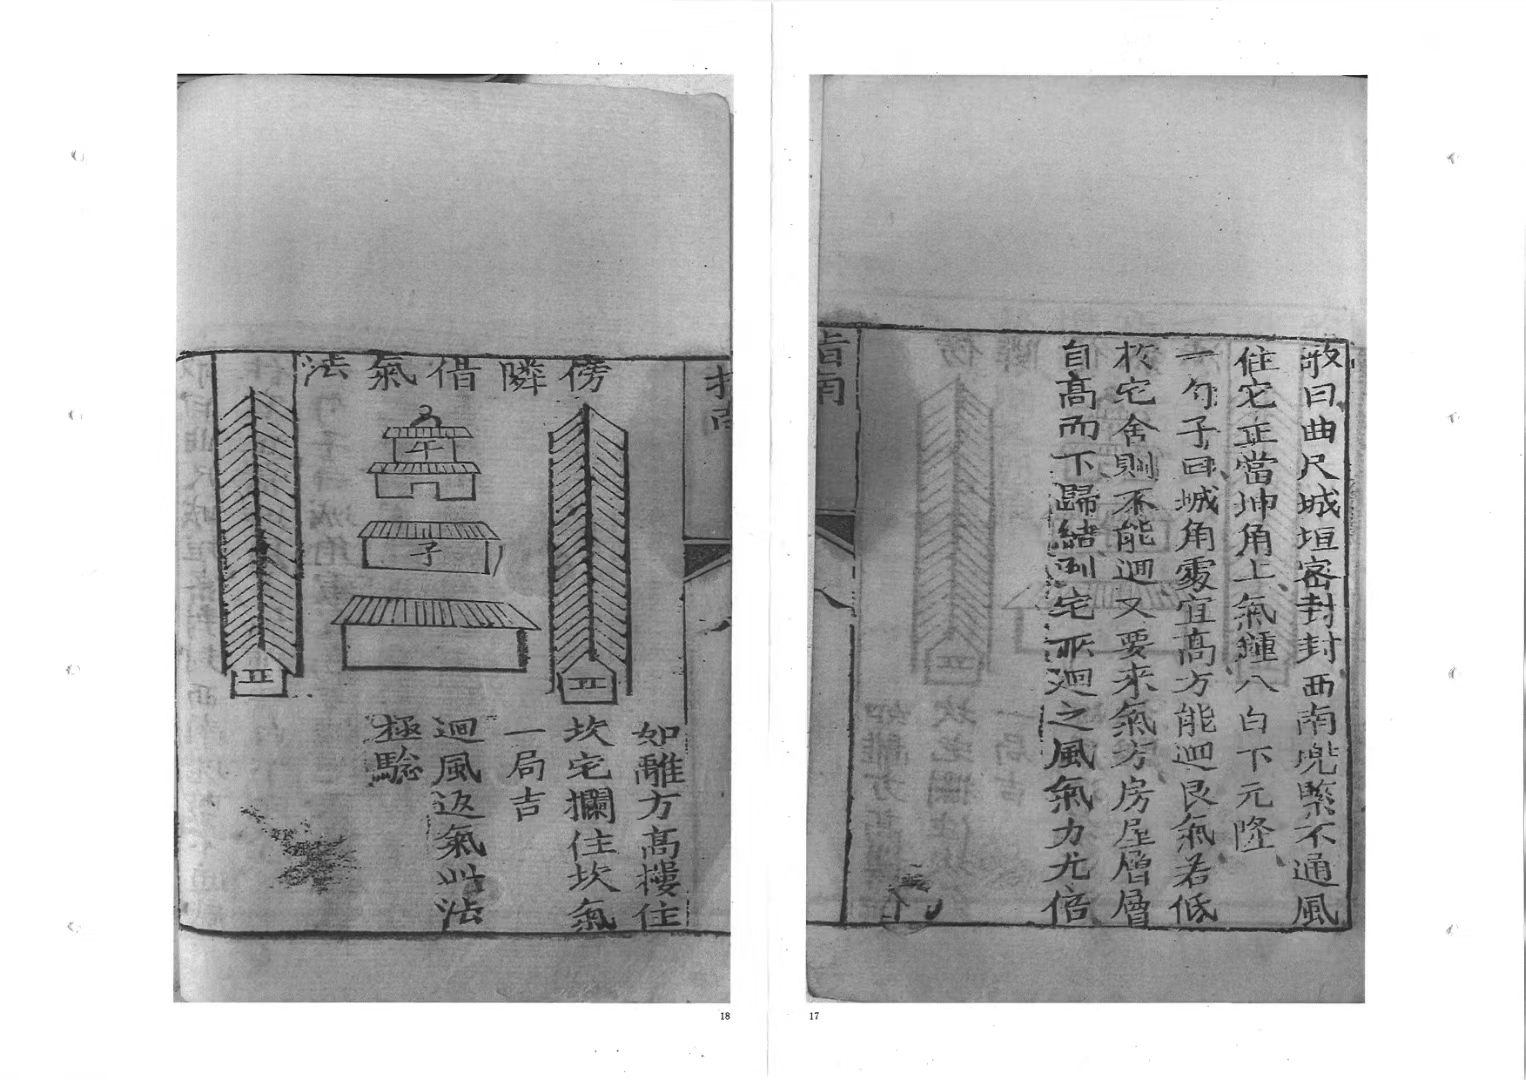 敢曰曲尺城垣密封封西南兜緊不通風
住宅正當坤角上氣鍾八白下元隆
一勾子曰城角處宜高方能迴艮氣若低
於宅舍則不能迴又要来氣方房屋層層
自高而下歸結到宅所迴之風氣力尤倍
指南
傍隣借氣法
午
子
如離方高樓住
坎宅攔住坎氣
一局吉
迴風返氣此法
極驗
18
17